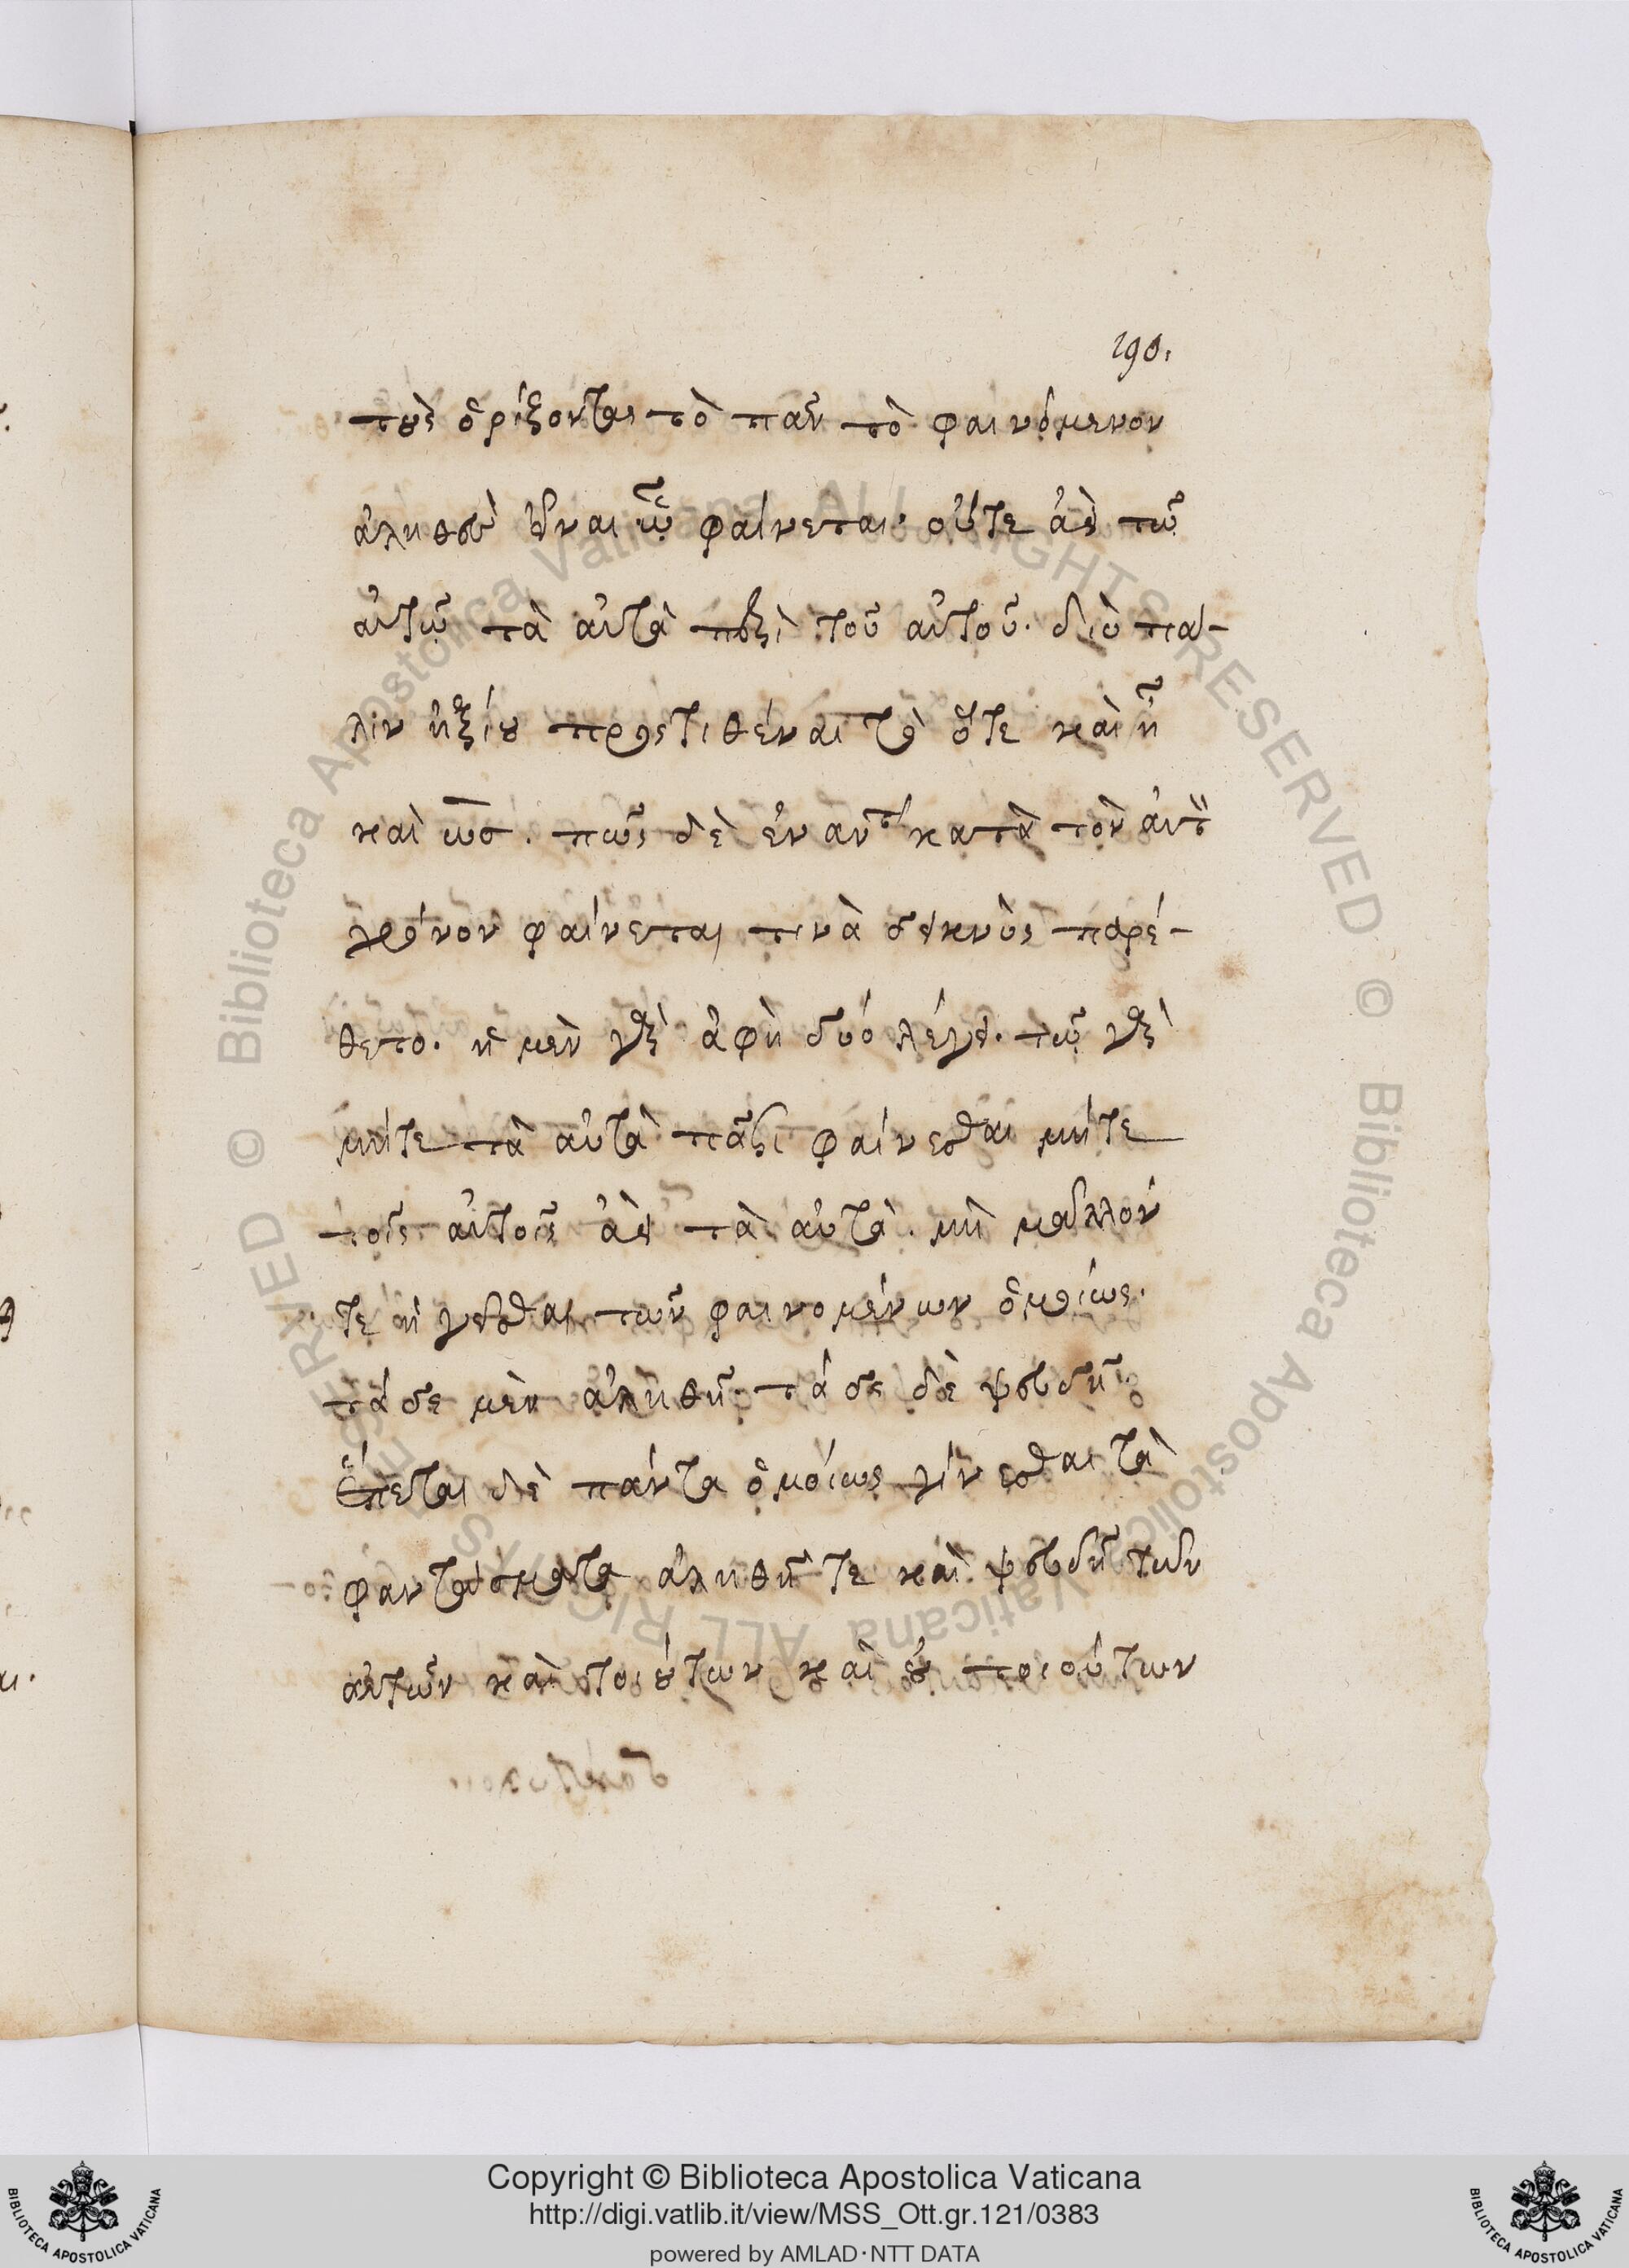 190.
τοὺς ὁρίζοντας τὸ πᾶν τὸ φαινόμενον
ἀληθὲς εἶναι ᾧ φαίνεται· οὔτε ἀεὶ τῷ
αὐτῷ τὰ αὐτὰ περὶ τοῦ αὐτοῦ. διὸ πά-
λιν ἠξίου προςτιθέναι τὸ ὅτε καὶ ᾗ
καὶ ὡς. πῶς δὲ ἐναντ κατὰ τὸν αὐτ
χρόνον φαίνεται τινὰ δεικνὺς παρέ-
θετο. ἡ μὲν γὰρ ἁφὴ δύο λέγει. τῷ γὰρ
μήτε τὰ αὐτὰ πᾶσι φαίνεσθαι μήτε
τοῖς αὐτοῖς ἀεὶ τὰ αὐτὰ. μὴ μᾶλλόν
τε ἡγεῖσθαι τῶν φαινομένων ὁμοίως.
τάδε μὲν ἀληθῆ. τάδε δὲ ψευδῆ
ἕπεται δὲ πάντα ὁμοίως γίνεσθαι τὰ
φαντάσματα ἀληθῆ τε καὶ ψευδῆ τῶν
αὐτῶν καὶ τοιούτων καὶ οὐ τοιούτων
© Biblioteca Apostolica Vaticana ALL RIGHTS RESERVED © Biblioteca Apostolica Vaticana ALL RIGHTS RESERVED
Copyright © Biblioteca Apostolica Vaticana
http://digi.vatlib.it/view/MSS_Ott.gr.121/0383
powered by AMLAD·NTT DATA
BIBLIOTECA APOSTOLICA VATICANA
BIBLIOTECA APOSTOLICA VATICANA